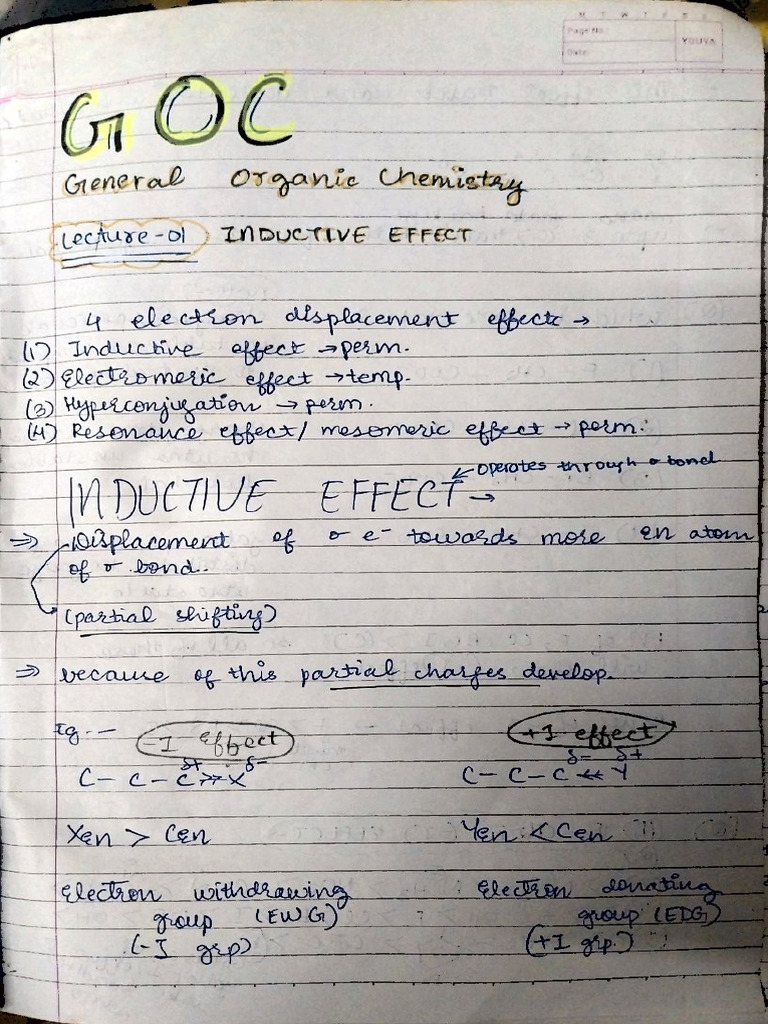 M T W T F S S
Page No.:
Date:
YOUVA
GOC
General Organic Chemistry
Lecture-01 INDUCTIVE EFFECT
4 electron displacement effects →
(1) Inductive effect → perm.
(2) Electromeric effect → temp.
(3) Hyperconjugation → perm.
(4) Resonance effect / mesomeric effect → perm.
INDUCTIVE EFFECT → ← operates through σ bond
⇒ Displacement of σ e⁻ towards more en atom
of σ bond.
(partial shifting)
⇒ because of this partial charges develop.
Eg. -
-I effect
+I effect
δ+ δ-
δ- δ+
C - C - C ->> X
C - C - C <<- Y
Xen > Cen
Yen < Cen
Electron withdrawing
group (EWG)
(-I grp)
Electron donating
group (EDG)
(+I grp.)